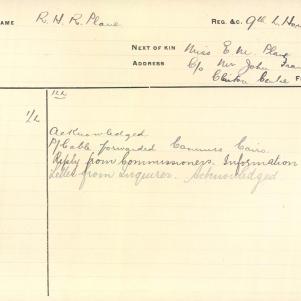 NAME R. H. R. Plane REG. &C. 9th L. Hor
NEXT OF KIN Miss E. M. Plane
ADDRESS C/o Mr John Fra
Clinton Centre F
1/2
Acknowledged
P/Cable forwarded Commrs Cairo
Reply from Commissioners. Information
Letter from Inquirer. Acknowledged